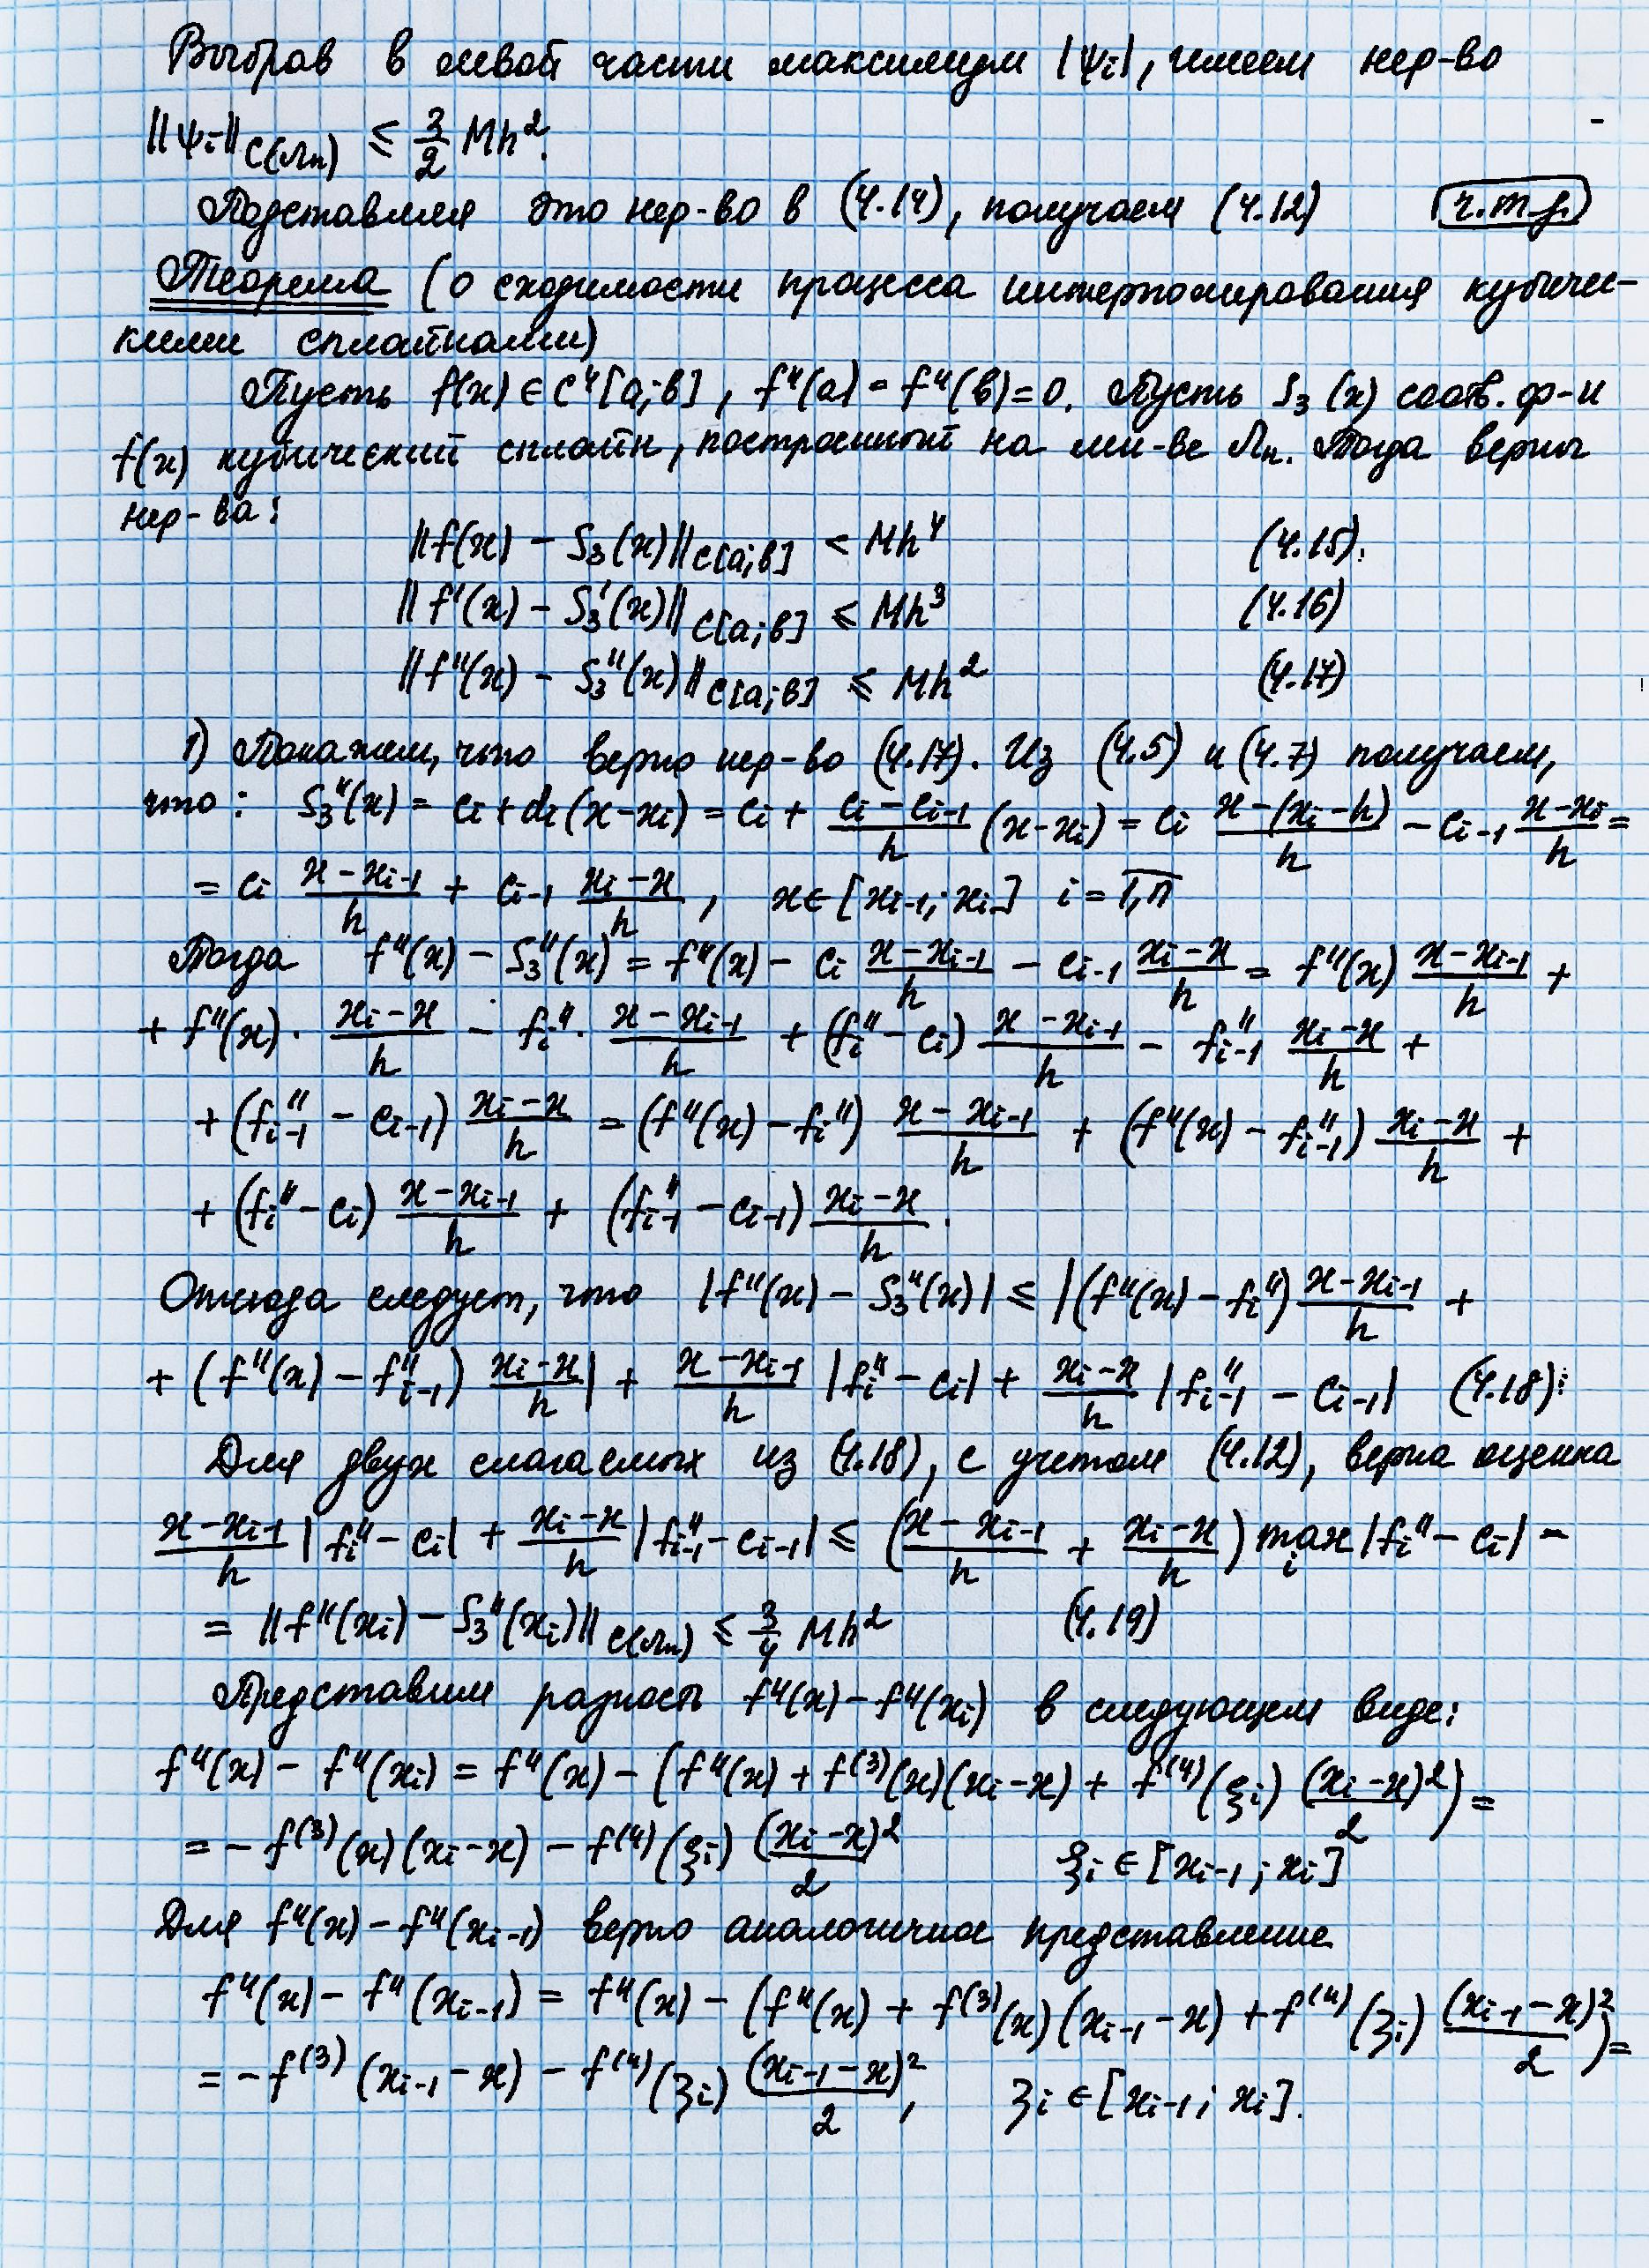 Выбрав в левой части максимум |ψi|, имеем нер-во
||ψi||C(Λn) ≤ 3/2 Mh².
Подставляя это нер-во в (4.14), получаем (4.12) ч.т.д.
Теорема (о сходимости процесса интерполирования кубичес-
кими сплайнами)
Пусть f(x) ∈ C⁴[a;b], f''(a) = f''(b) = 0. Пусть S₃(x) соотв. ф-и
f(x) кубический сплайн, построенный на мн-ве Λn. Тогда верны
нер-ва:
||f(x) − S₃(x)||C[a;b] < Mh⁴ (4.15)
||f'(x) − S₃'(x)||C[a;b] ≤ Mh³ (4.16)
||f''(x) − S₃''(x)||C[a;b] ≤ Mh² (4.17)
1) Покажем, что верно нер-во (4.17). Из (4.5) и (4.7) получаем,
что: S₃''(x) = ci + di(x−xi) = ci + (ci − ci−1)/h (x−xi) = ci (x−(xi−h))/h − ci−1 (x−xi)/h =
= ci (x−xi−1)/h + ci−1 (xi−x)/h, x∈[xi−1; xi] i = 1,n
Тогда f''(x) − S₃''(x) = f''(x) − ci (x−xi−1)/h − ci−1 (xi−x)/h = f''(x) (x−xi−1)/h +
+ f''(x) · (xi−x)/h − fi'' · (x−xi−1)/h + (fi''−ci) (x−xi−1)/h − fi−1'' (xi−x)/h +
+ (fi−1'' − ci−1) (xi−x)/h = (f''(x)−fi'') (x−xi−1)/h + (f''(x) − fi−1'') (xi−x)/h +
+ (fi''−ci) (x−xi−1)/h + (fi−1'' − ci−1) (xi−x)/h.
Отсюда следует, что |f''(x) − S₃''(x)| ≤ |(f''(x) − fi'') (x−xi−1)/h +
+ (f''(x) − fi−1'') (xi−x)/h| + (x−xi−1)/h |fi'' − ci| + (xi−x)/h |fi−1'' − ci−1| (4.18)
Для двух слагаемых из (4.18), с учетом (4.12), верна оценка
(x−xi−1)/h |fi'' − ci| + (xi−x)/h |fi−1'' − ci−1| ≤ ((x−xi−1)/h + (xi−x)/h) max i |fi'' − ci| =
= ||f''(xi) − S₃''(xi)||C(Λn) ≤ 3/4 Mh² (4.19)
Представим разность f''(x) − f''(xi) в следующем виде:
f''(x) − f''(xi) = f''(x) − (f''(x) + f⁽³⁾(x)(xi−x) + f⁽⁴⁾(ξi) (xi−x)²/2) =
= −f⁽³⁾(x)(xi−x) − f⁽⁴⁾(ξi) (xi−x)²/2 ξi ∈ [xi−1; xi]
Для f''(x) − f''(xi−1) верно аналогичное представление
f''(x) − f''(xi−1) = f''(x) − (f''(x) + f⁽³⁾(x)(xi−1−x) + f⁽⁴⁾(ʒi) (xi−1−x)²/2) =
= −f⁽³⁾(xi−1−x) − f⁽⁴⁾(ʒi) (xi−1−x)²/2, ʒi ∈ [xi−1; xi].